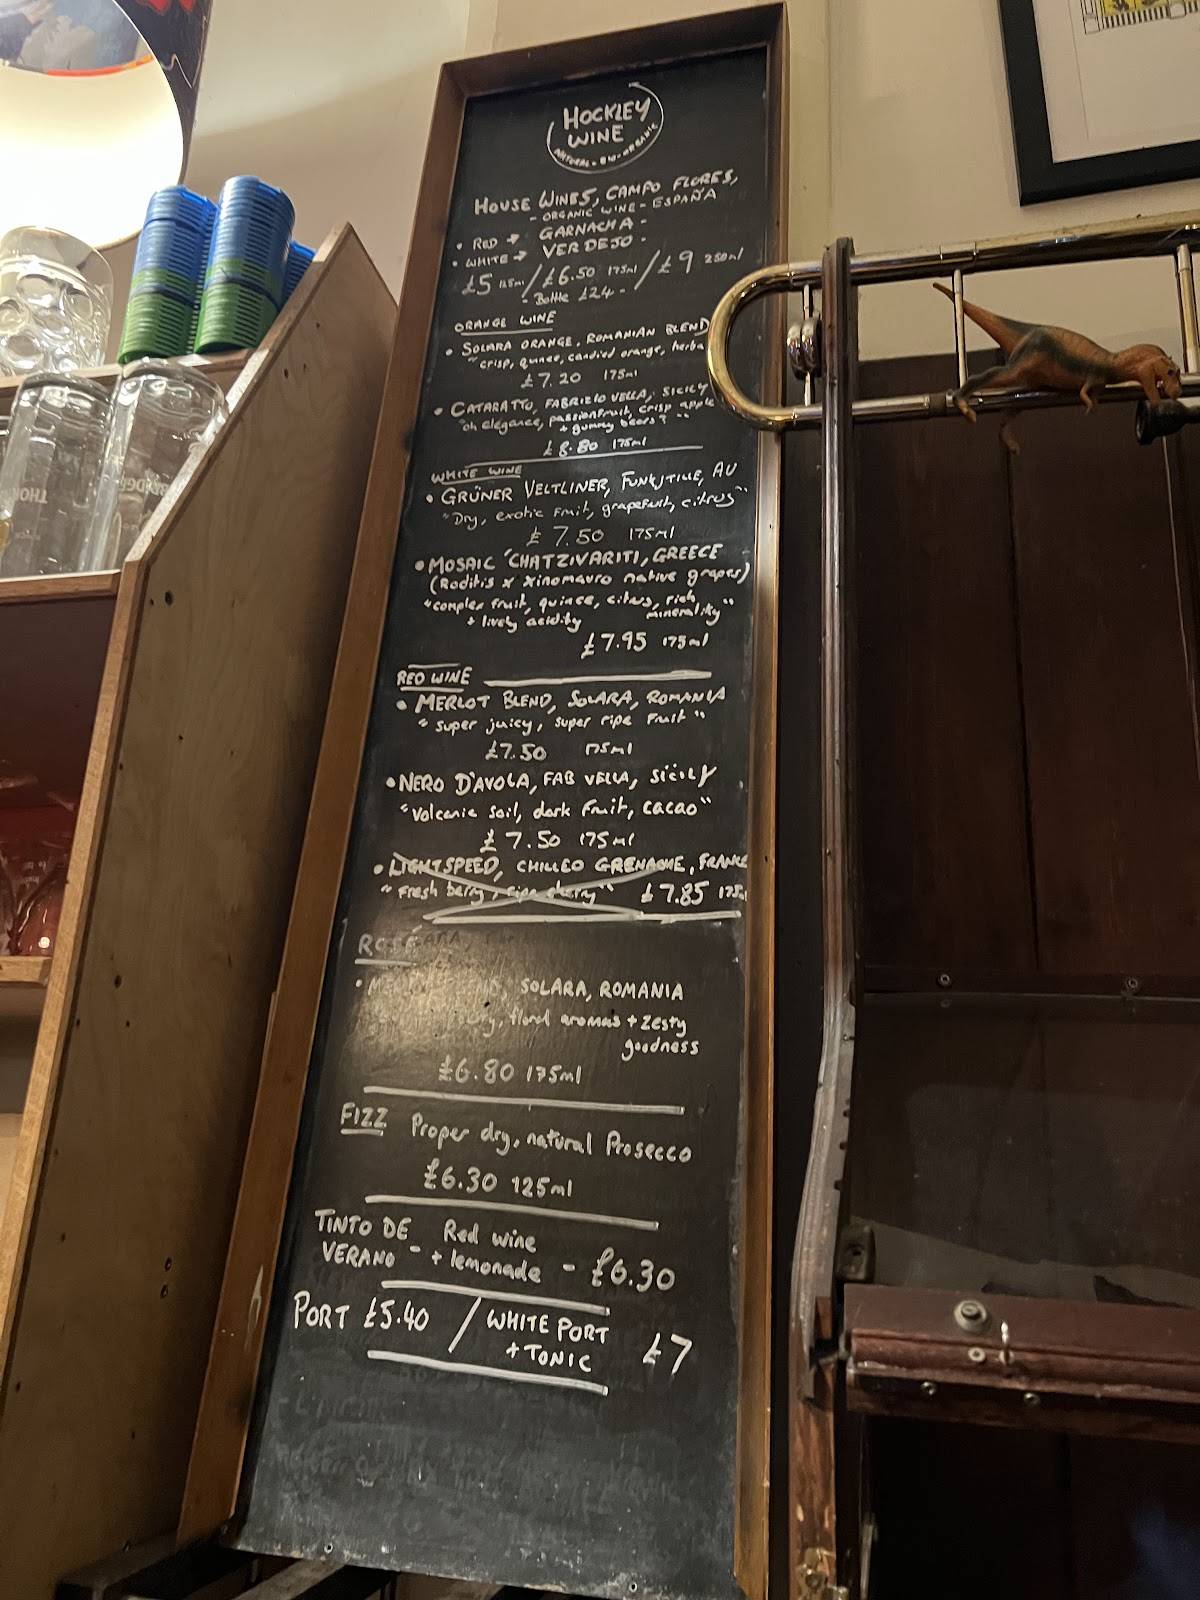 HOCKLEY
WINE
NATURAL - BIO - ORGANIC
HOUSE WINES, CAMPO FLORES,
- ORGANIC WINE - ESPAÑA
• RED → GARNACHA -
• WHITE → VERDEJO -
£5 125ml / £6.50 175ml / £9 250ml
- Bottle £24 -
ORANGE WINE
• SOLARA ORANGE, ROMANIAN BLEND
"crisp, quince, candied orange, herba
£7.20 175ml
• CATARATTO, FABRIZIO VELLA, SICILY
"oh elegance, passionfruit, crisp apple
+ gummy bears?"
£8.80 175ml
WHITE WINE
• GRÜNER VELTLINER, FUNKYTILLE, AU
"Dry, exotic fruit, grapefruit, citrus"
£7.50 175ml
• MOSAIC 'CHATZIVARITI, GREECE
(Roditis x xinomauro native grapes)
"complex fruit, quince, citrus, rich
minerality"
+ lively acidity
£7.95 175ml
RED WINE
• MERLOT BLEND, SOLARA, ROMANIA
"super juicy, super ripe fruit"
£7.50 175ml
• NERO D'AVOLA, FAB VELLA, SICILY
"Volcanic soil, dark fruit, cacao"
£7.50 175ml
• LIGHTSPEED, CHILLED GRENACHE, FRANCE
"Fresh berry, ripe cherry" £7.85 175ml
ROSÉ
SOLARA, ROMANIA
floral aromas + zesty
goodness
£6.80 175ml
FIZZ Proper dry, natural Prosecco
£6.30 125ml
TINTO DE Red wine
VERANO - + lemonade - £6.30
PORT £5.40 / WHITE PORT
+ TONIC £7